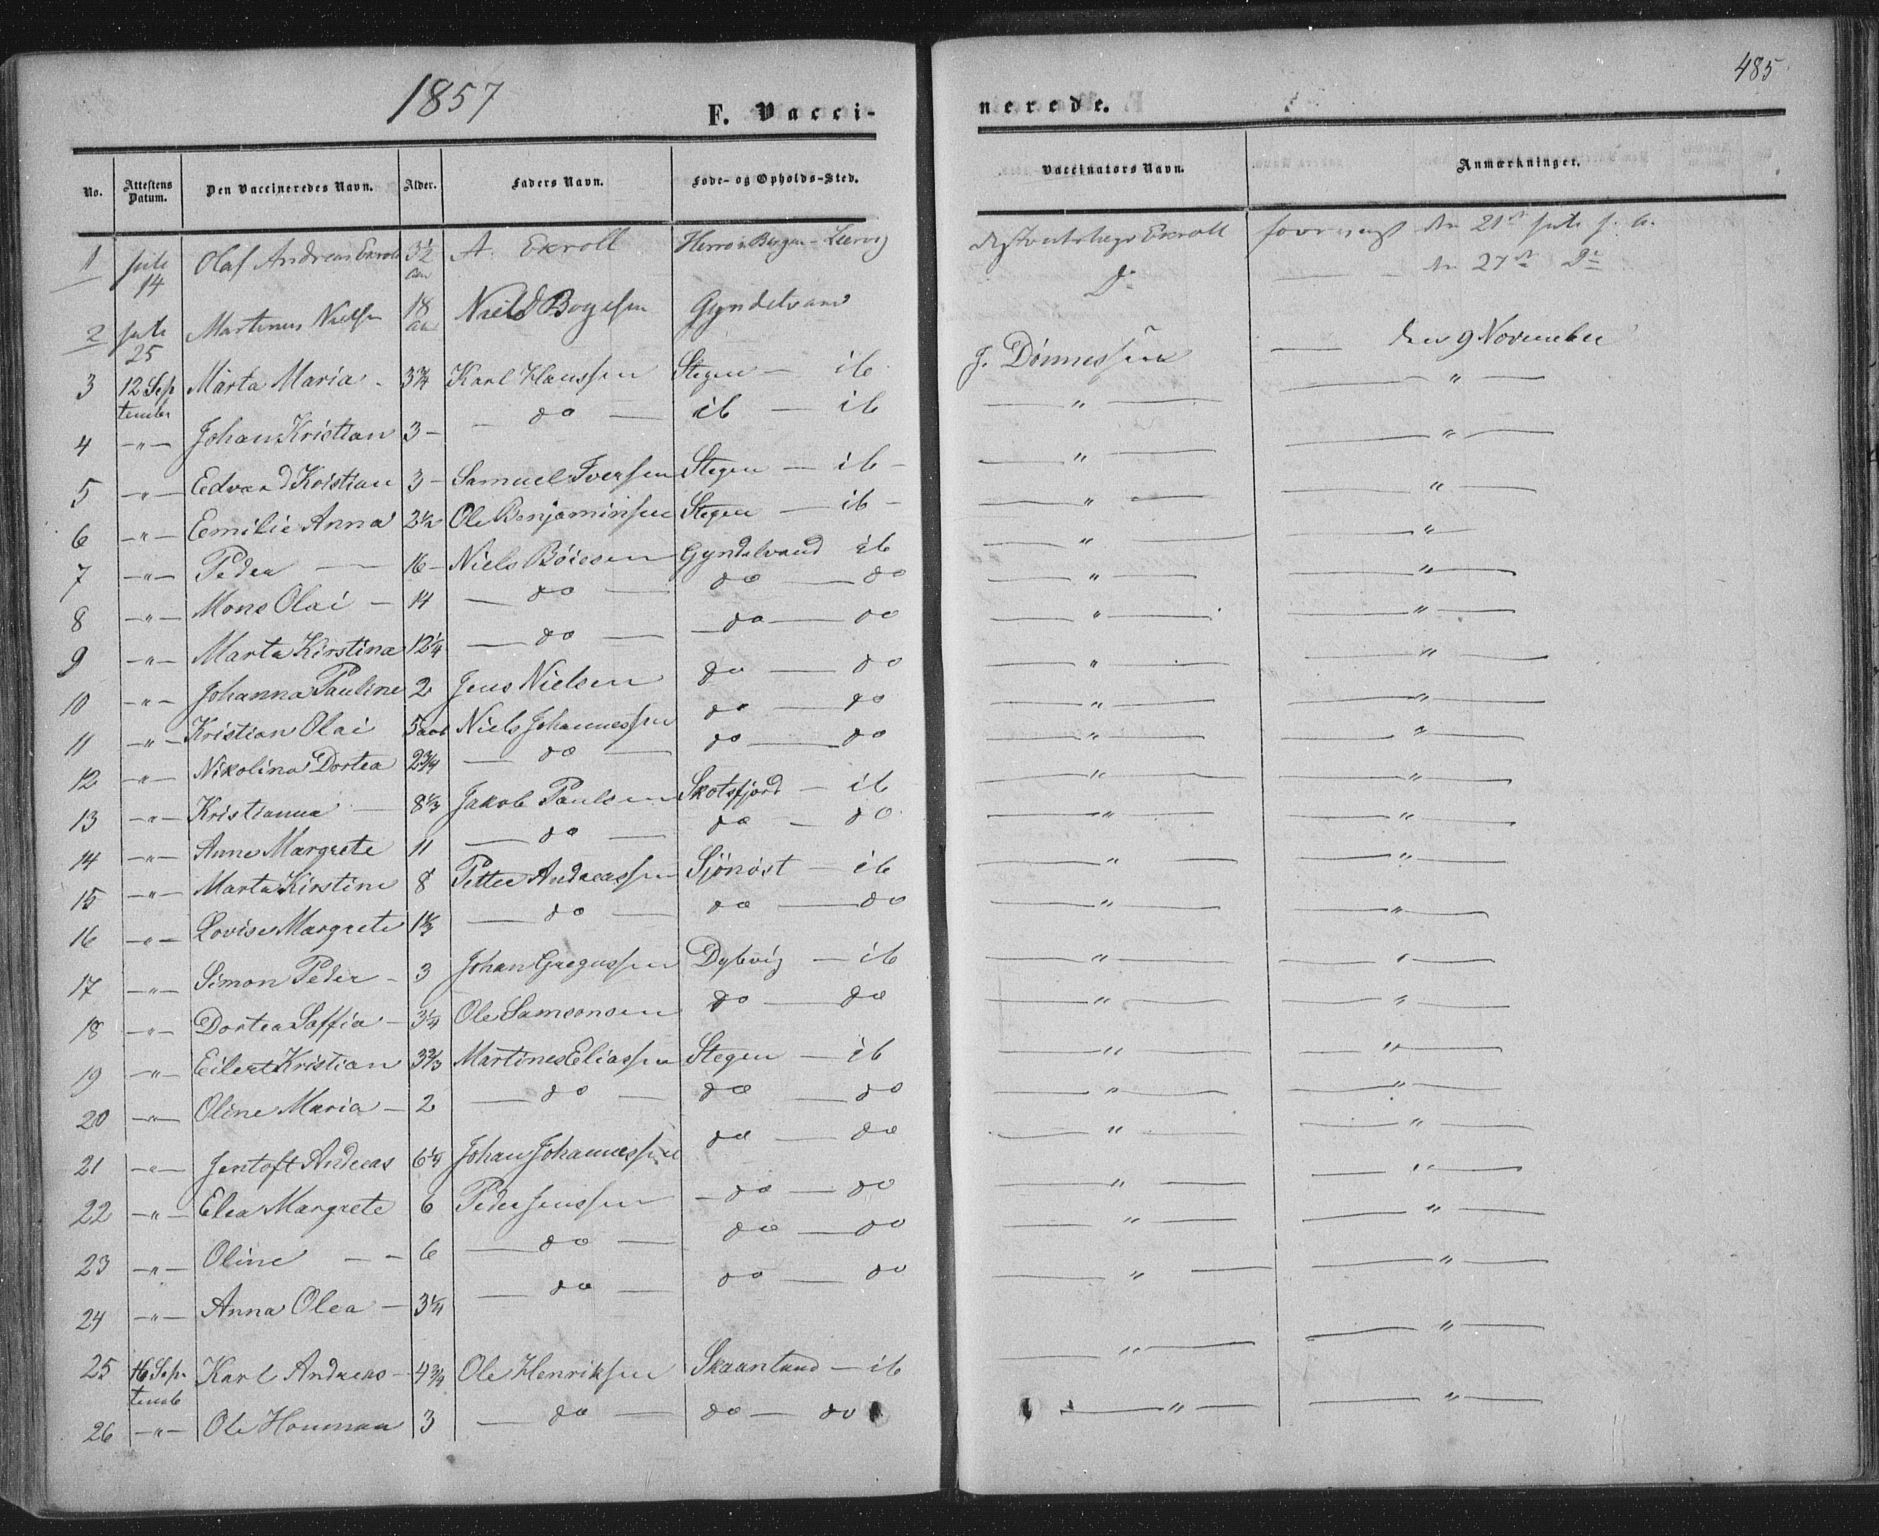 1857
485
F. Vacci-
nerede.
No. Attestens Datum. Den Vaccineredes Navn. Alder. Faders Navn. Føde- og Opholds-Sted. Vaccinators Navn. Anmærkninger.
1 Juli 14 Olaf Andreas Ekroll 3 1/2 aar A. Ekroll Ekroll den 21de Juli
2 Juli 25 Martinus Nielsen 18 aar Niels Boyesen Gyndelvand Do den 27de Do
3 12 September Marta Maria - 3 3/4 Karl Hanssen Stegen - ib J. Dønnessen — den 9 November
4 -"- Johan Kristian 3 - — do — ib — ib — " — — " —
5 -"- Edvard Kristian 3 - Samuel Iversen Stegen — ib - — " — — " —
6 -"- Eemilie Anna 2 1/2 Ole Benjaminsen Stegen — ib - — " — — " —
7 -"- Peder — 16 - Niels Böiesen Gyndelvand ib — " — — " —
8 -"- Mons Olai - 14 — do — do — do — " — — " —
9 -"- Marta Kirstina 12 1/4 — do — do — do — " — — " —
10 -"- Johanna Pauline 2 Jens Nielsen do — do — " — — " —
11 -"- Kristian Olai 5 aar Niels Johannessen do — do — " — — " —
12 -"- Nikolina Dortea 2 3/4 — do — do — do — " — — " —
13 -"- Kristianna — 8 1/3 Jakob Paulsen Skotsfjord — ib — " — — " —
14 -"- Anne Margrete 11 — do — do — do — " — — " —
15 -"- Marta Kirstine 8 Petter Andreassen Sjönöst — ib — " — — " —
16 -"- Lovise Margrete 1 2/3 — do — do — do — " — — " —
17 -"- Simon Peder - 3 Johan Gregussen Dybvig — ib — " — — " —
18 -"- Dortea Soffia - 3 1/4 Ole Samsonsen do — do — " — — " —
19 -"- Eilert Kristian 3 2/3 Martines Eliassen Stegen — ib — " — — " —
20 -"- Oline Maria - 2 — do — do — do — " — — " —
21 -"- Jentoft Andreas 6 1/4 Johan Johannessen do — do — " — — " —
22 -"- Elea Margrete 6 Peder Jenssen - do — do — " — — " —
23 -"- Oline — - 6 — do — do — do — " — — " —
24 -"- Anna Olea - 3 1/4 — do — do — do — " — — " —
25 16 September Karl Andreas - 4 3/4 Ole Henriksen Skaanland — ib — " — — " —
26 -"- Ole 3 — do — do — do — " — — " —